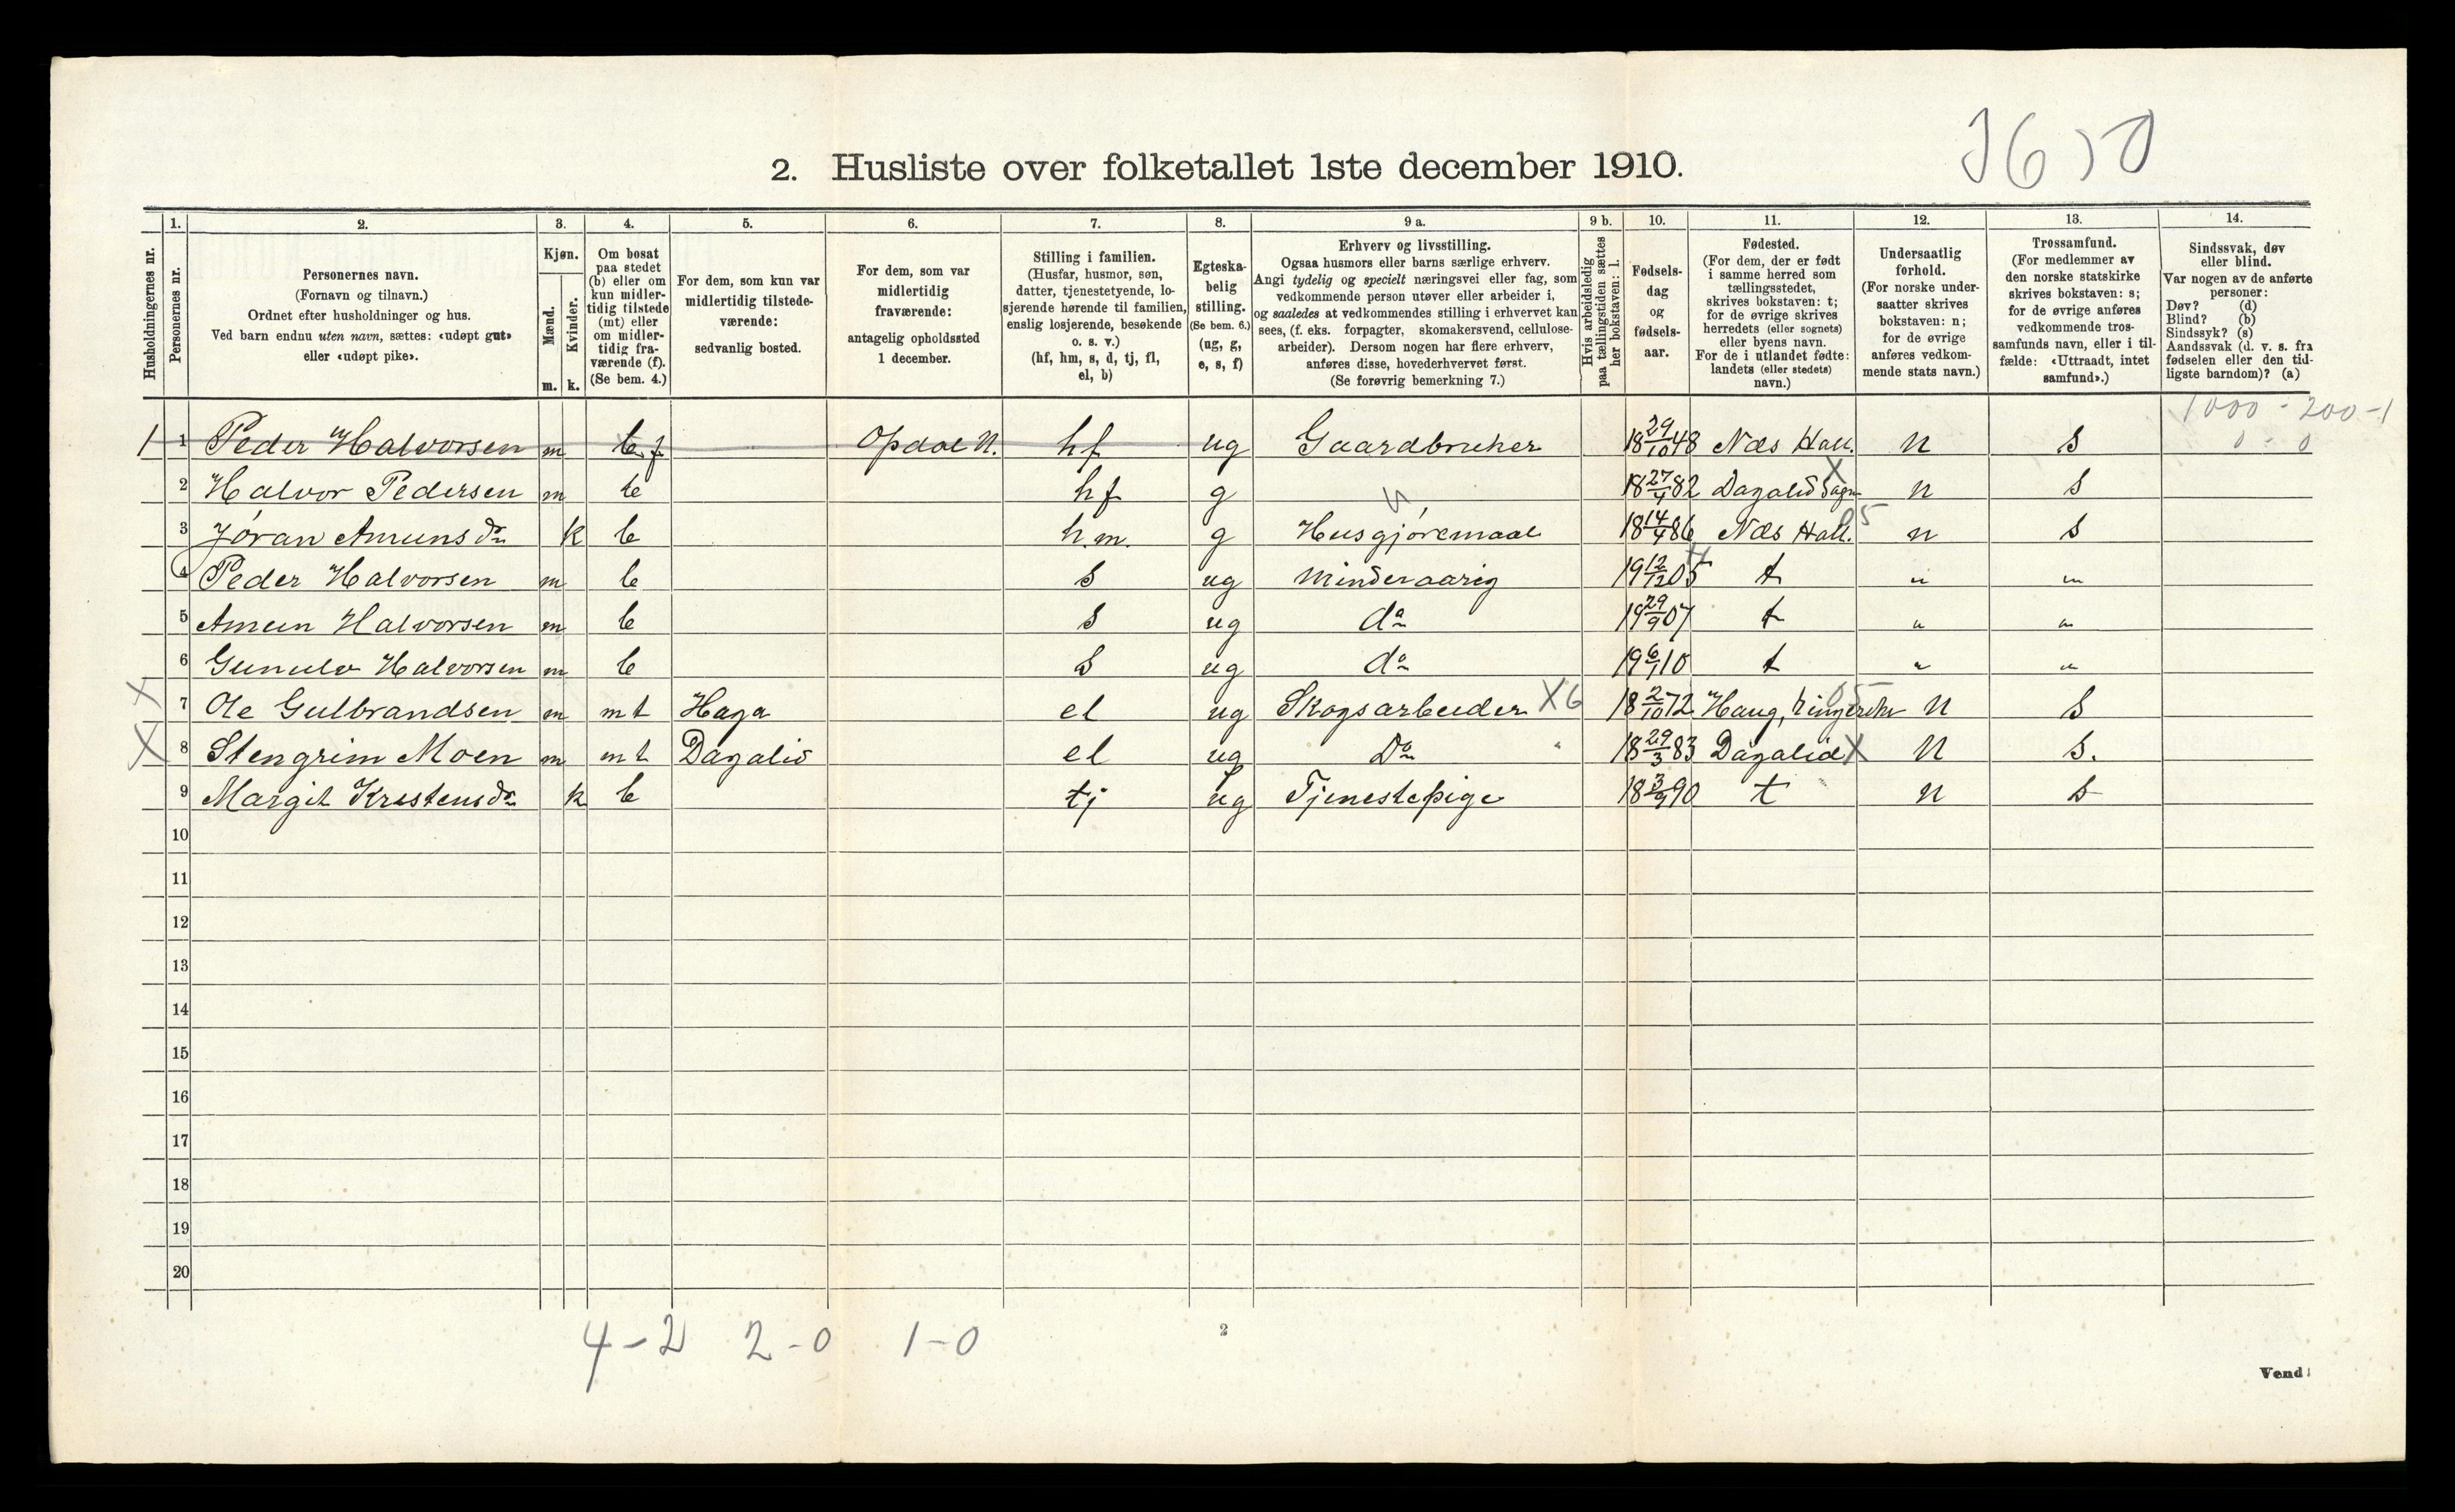 2. Husliste over folketallet 1ste december 1910.
Husholdningernes nr.
1.
Personernes nr.
2.
Personernes navn.
(Fornavn og tilnavn.)
Ordnet efter husholdninger og hus.
Ved barn endnu uten navn, sættes: «udøpt gut»
eller «udøpt pike».
3.
Kjøn.
Mænd.
Kvinder.
m. k.
4.
Om bosat
paa stedet
(b) eller om
kun midler-
tidig tilstede
(mt) eller
om midler-
tidig fra-
værende (f).
(Se bem. 4.)
5.
For dem, som kun var
midlertidig tilstede-
værende:
sedvanlig bosted.
6.
For dem, som var
midlertidig
fraværende:
antagelig opholdssted
1 december.
7.
Stilling i familien.
(Husfar, husmor, søn,
datter, tjenestetyende, lo-
sjerende hørende til familien,
enslig losjerende, besøkende
o. s. v.)
(hf, hm, s, d, tj, fl,
el, b)
8.
Egteska-
belig
stilling.
(Se bem. 6.)
(ug, g,
e, s, f)
9 a.
Erhverv og livsstilling.
Ogsaa husmors eller barns særlige erhverv.
Angi tydelig og specielt næringsvei eller fag, som
vedkommende person utøver eller arbeider i,
og saaledes at vedkommendes stilling i erhvervet kan
sees, (f. eks. forpagter, skomakersvend, cellulose-
arbeider). Dersom nogen har flere erhverv,
anføres disse, hovederhvervet først.
(Se forøvrig bemerkning 7.)
9 b.
Hvis arbeidsledig
paa tællingstiden sættes
her bokstaven: l.
10.
Fødsels-
dag
og
fødsels-
aar.
11.
Fødested.
(For dem, der er født
i samme herred som
tællingsstedet,
skrives bokstaven: t;
for de øvrige skrives
herredets (eller sognets)
eller byens navn.
For de i utlandet fødte:
landets (eller stedets)
navn.)
12.
Undersaatlig
forhold.
(For norske under-
saatter skrives
bokstaven: n;
for de øvrige
anføres vedkom-
mende stats navn.)
13.
Trossamfund.
(For medlemmer av
den norske statskirke
skrives bokstaven: s;
for de øvrige anføres
vedkommende tros-
samfunds navn, eller i til-
fælde: «Uttraadt, intet
samfund».)
14.
Sindssvak, døv
eller blind.
Var nogen av de anførte
personer:
Døv? (d)
Blind? (b)
Sindssyk? (s)
Aandssvak (d. v. s. fra
fødselen eller den tid-
ligste barndom)? (a)
1000 - 200-1
0 - 0
1 1 Peder Halvorsen m b f Opdal N. hf ug Gaardbruker 18 29/10 48 Næs Hall. n s
2 Halvor Pedersen m b hf g 18 27/4 82 Dagalid X n s
3 Jøran Amunsdn k b h.m. g Husgjøremaal 18 14/4 86 Næs Hall. 05 n s
4 Peder Halvorsen m b s ug minderaarig 19 12/12 05 t " "
5 Amun Halvorsen m b s ug do 19 29/9 07 t " "
6 Gunulv Halvorsen m b s ug do 19 6/1 10 t " "
X 7 Ole Gulbrandsen m mt Haga el ug Skogsarbeider X6 18 2/10 72 Haug, Ringerike 05 n s
X 8 Stengrim Moen m mt Dagalid el ug Do " 18 29/3 83 Dagalid X n s.
9 Margit Kristensdn k b tj ug Tjenestepige 18 3/9 90 t n s
10
11
12
13
14
15
16
17
18
19
20
4-2 2-0 1-0
2
Vend!